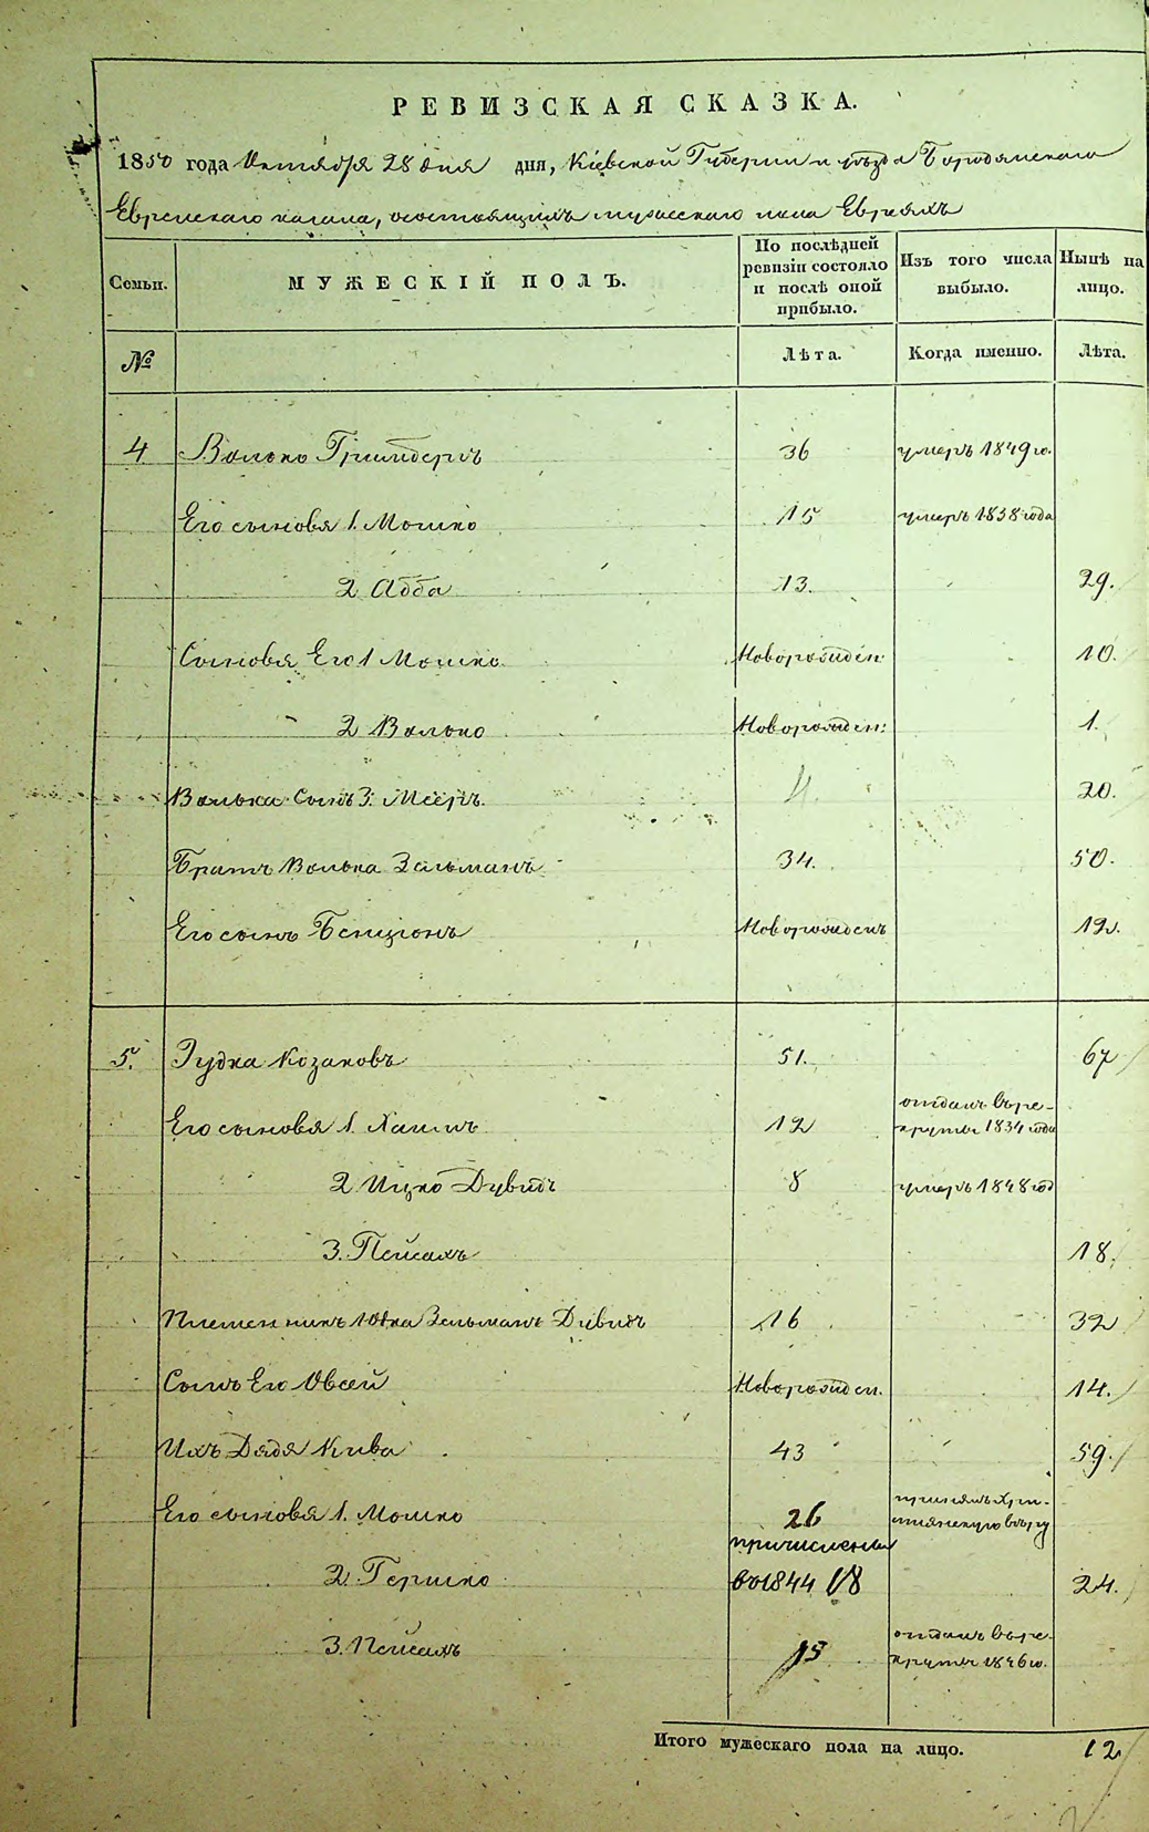 РЕВИЗСКАЯ СКАЗКА.
1850 года Октября 28 дня дня, Кіевской Губерніи и уѣзда Бородянскаго
Еврейскаго кагала, о состоящихъ мужескаго пола Евреяхъ
Семьи.
МУЖЕСКІЙ ПОЛЪ.
По послѣдней ревизіи состояло и послѣ оной прибыло.
Изъ того числа выбыло.
Нынѣ на лицо.
№
Лѣта.
Когда именно.
Лѣта.
4 Волько Гринберъ 36 умеръ 1849 го.
Его сыновя 1. Мошко 15 умеръ 1838 года
2 Абба 13. 29.
Сыновя Его 1 Мошко Новорожден. 10.
2 Волько Новорожден: 1.
Волька Сынъ 3. Мееръ. 4. 20.
Братъ Волька Зельманъ 34. 50.
Его сынъ Бенціонъ Новорожденъ 12.
5. Іудка Козаковъ 51. 67
Его сыновя 1. Хаимъ 12 отданъ въ ре-
круты 1834 года
2 Ицко Дувидъ 8 умеръ 1848 год
3. Пейсахъ 18.
Племенникъ Юдка Зельманъ Дувидъ 16 32
Сынъ Его Овсей Новорожден. 14.
Ихъ Дядя Кива 43 59.
Его сыновя 1. Мошко 26 принялъ Хри-
стіянскую вѣру
2. Гершко причислены
во 1844 18 24.
3. Пейсахъ 13 отданъ въ ре-
круты 1846 го.
Итого мужескаго пола на лицо. 12